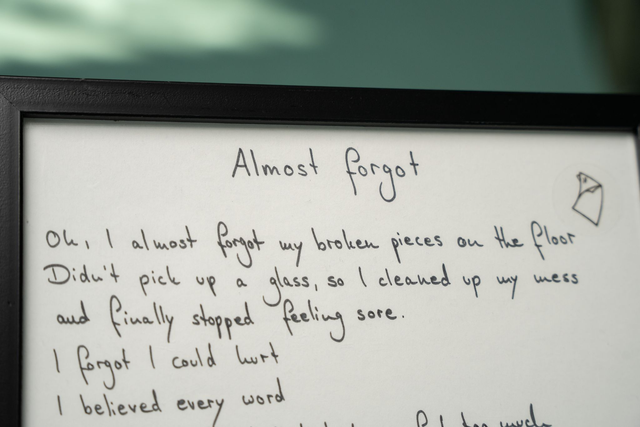 Almost forgot
Oh, I almost forgot my broken pieces on the floor
Didn't pick up a glass, so I cleaned up my mess
and finally stopped feeling sore.
I forgot I could hurt
I believed every word
much